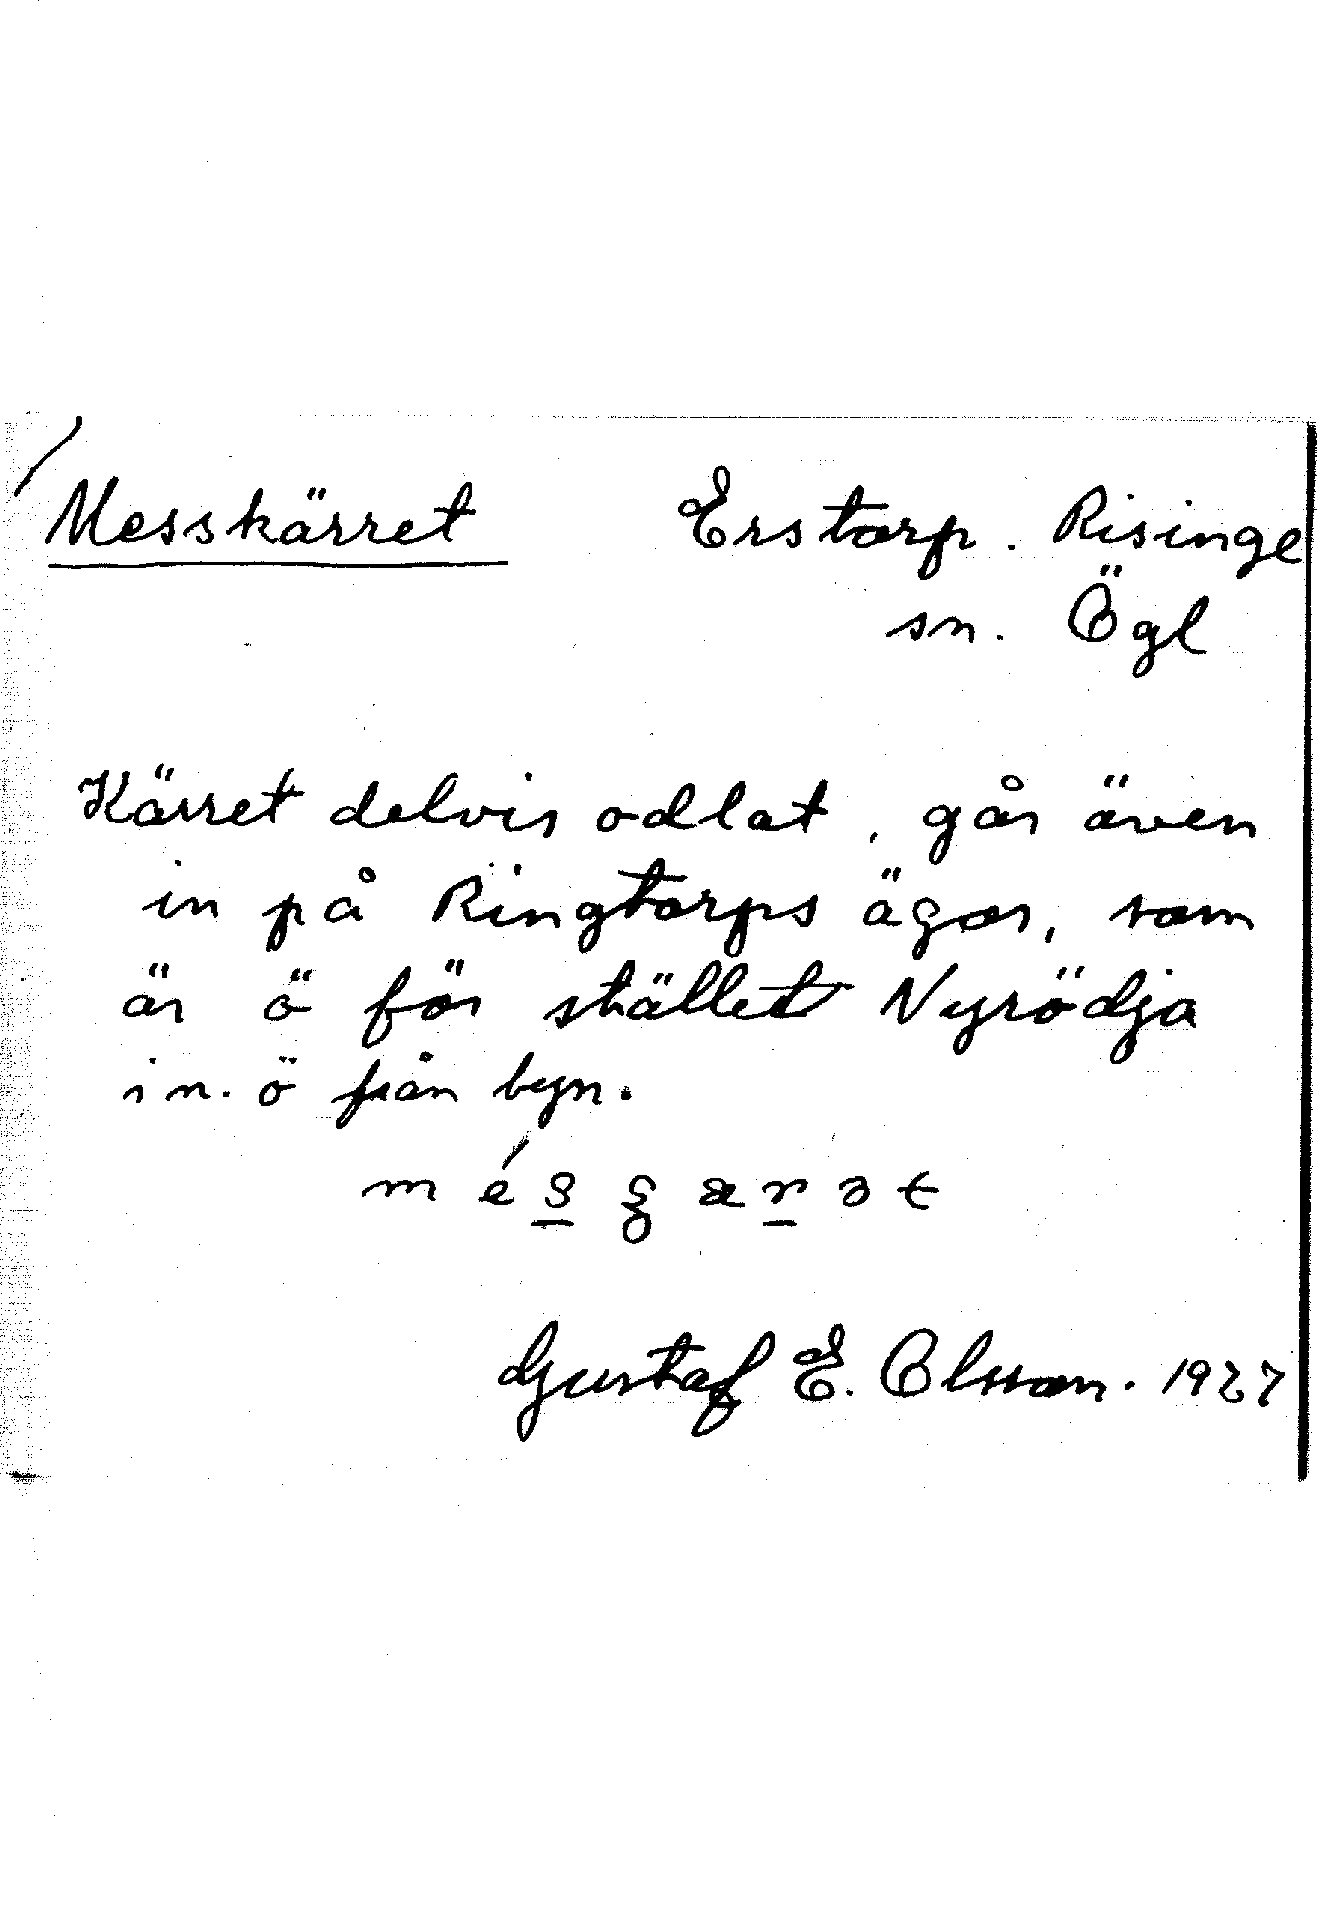 Messkärret Erstorp. Risinge
sn. Ögl
Kärret delvis odlat, går även
in på Ringtorps ägor, som
är ö för stället Nyrödja
i n. ö från byn.
Gustaf E. Olsson. 1927